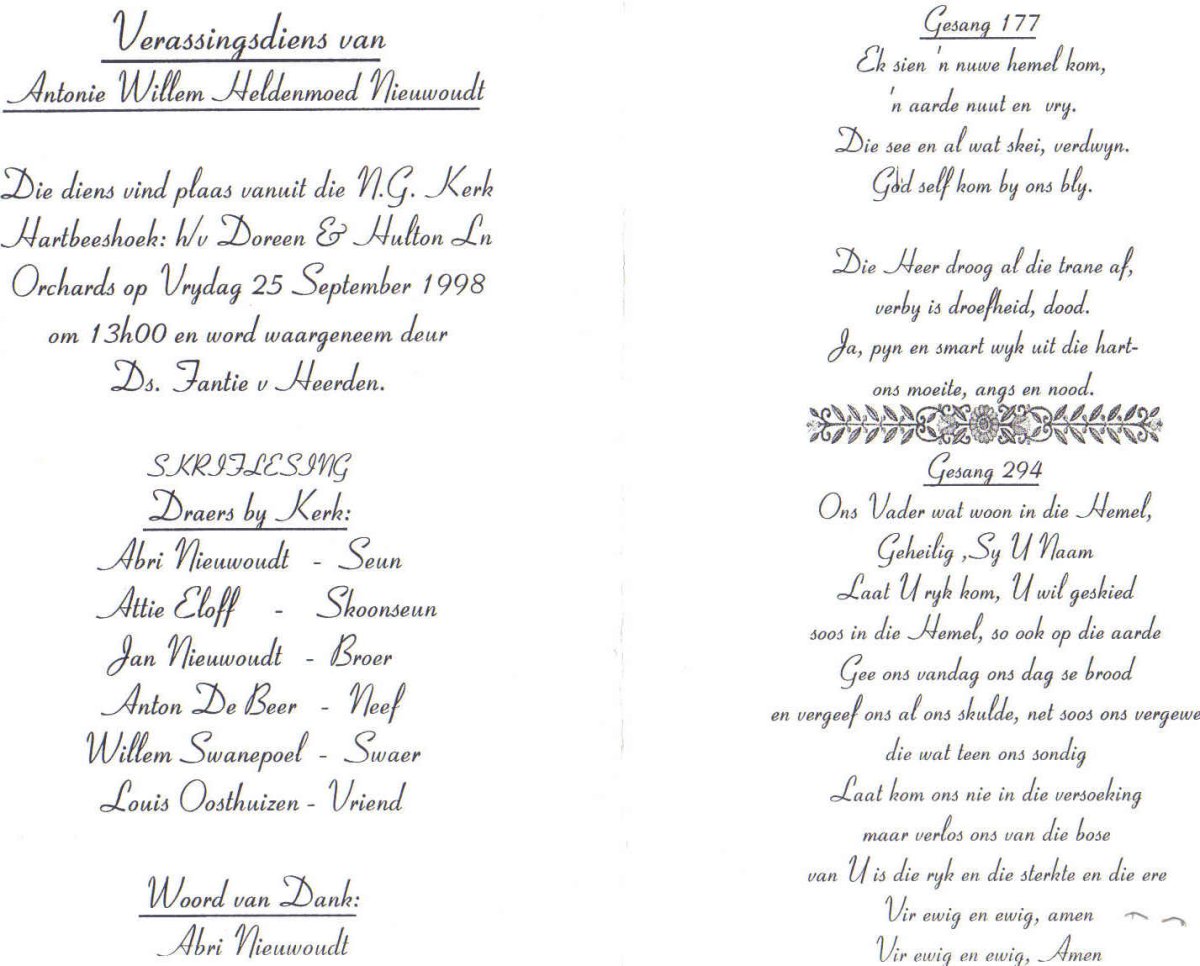 Verassingsdiens van
Antonie Willem Heldenmoed Nieuwoudt
Die diens vind plaas vanuit die N.G. Kerk
Hartbeeshoek: h/v Doreen & Hulton Ln
Orchards op Vrydag 25 September 1998
om 13h00 en word waargeneem deur
Ds. Fantie v Heerden.
SKRIFLESING
Draers by Kerk:
Abri Nieuwoudt - Seun
Attie Eloff - Skoonseun
Jan Nieuwoudt - Broer
Anton De Beer - Neef
Willem Swanepoel - Swaer
Louis Oosthuizen - Vriend
Woord van Dank:
Abri Nieuwoudt
Gesang 177
Ek sien 'n nuwe hemel kom,
'n aarde nuut en vry.
Die see en al wat skei, verdwyn.
God self kom by ons bly.
Die Heer droog al die trane af,
verby is droefheid, dood.
Ja, pyn en smart wyk uit die hart-
ons moeite, angs en nood.
Gesang 294
Ons Vader wat woon in die Hemel,
Geheilig ,Sy U Naam
Laat U ryk kom, U wil geskied
soos in die Hemel, so ook op die aarde
Gee ons vandag ons dag se brood
en vergeef ons al ons skulde, net soos ons vergewe
die wat teen ons sondig
Laat kom ons nie in die versoeking
maar verlos ons van die bose
van U is die ryk en die sterkte en die ere
Vir ewig en ewig, amen
Vir ewig en ewig, Amen